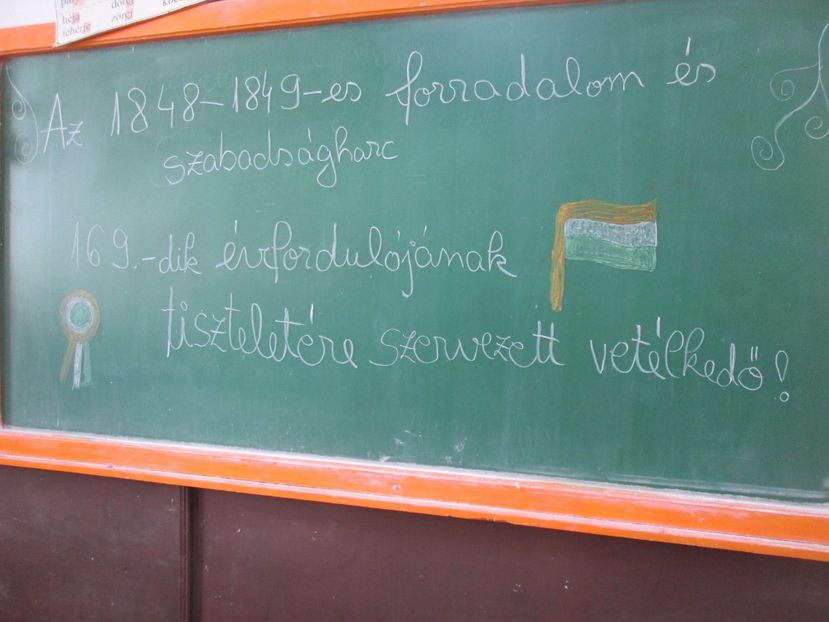 héja
fehérje
zörgő
Az 1848-1849-es forradalom és
szabadságharc
169.-dik évfordulójának
tiszteletére szervezett vetélkedő!